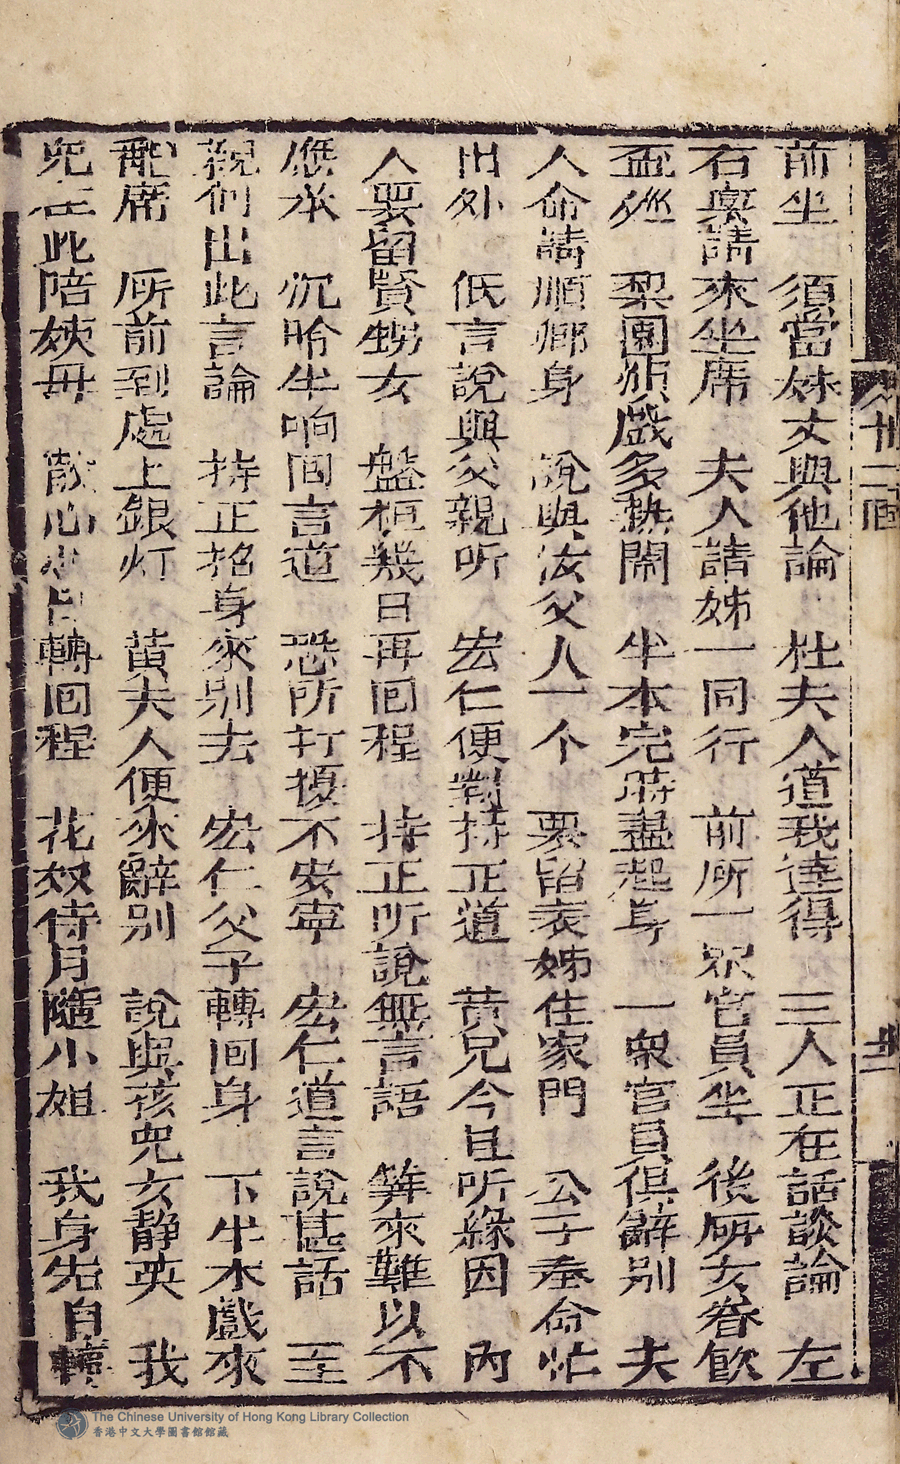 前坐　須當妹丈與他論　杜夫人道我達得　三人正在話談論　左
右裏請來坐席　夫人請姊一同行　前所一眾官員坐　後所女眷飲
盃廵　梨園煩戲多熱鬧　半本完時盡起身　一衆官員俱辭別　夫
人命請順鄉身　說與汝父人一个　要留表姊住家門　公子奉命忙
出外　低言說與父親听　宏仁便對持正道　黄兄今日听緣因　内
人要留賢甥女　盤桓幾日再回程　持正听說無言語　筭來難以不
應承　沉吟半响回言道　恐所打擾不安寕　宏仁道言說甚話　至
親們出此言論　持正抬身來别去　宏仁父子轉回身　下半本戲來
酡席　所前到處上銀灯　黄夫人便來辭别　說與孩兒女静英　我
兒在此陪姨母　散心　日轉回程　花奴侍月隨小姐　我身先自轉
卅二囬
卄二
The Chinese University of Hong Kong Library Collection
香港中文大學圖書館館藏